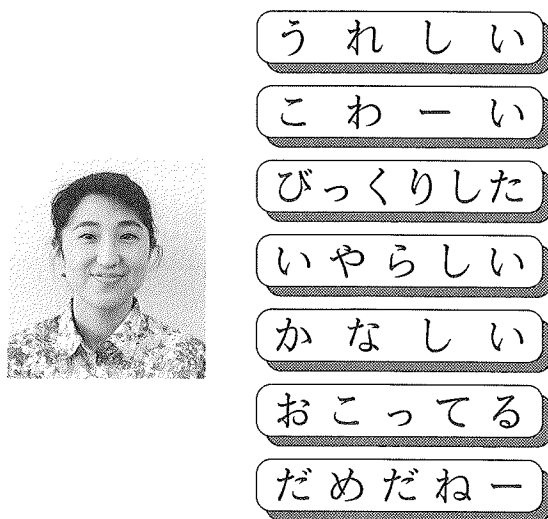 うれしい
こわーい
びっくりした
いやらしい
かなしい
おこってる
だめだねー